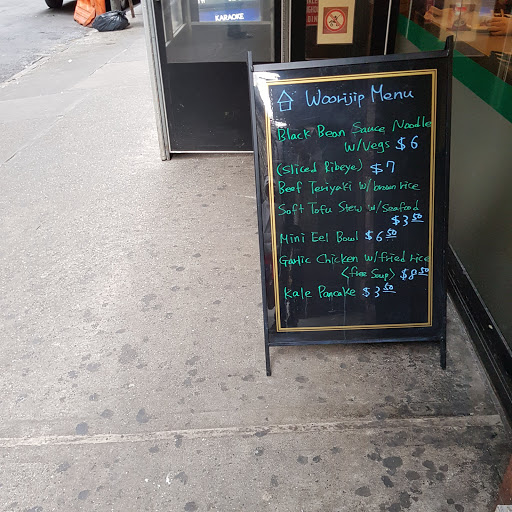 KARAOKE
Woorijip Menu
Black Bean Sauce Noodle
w/Vegs $6
(Sliced Ribeye) $7
Beef Teriyaki w/brown rice
Soft Tofu Stew w/Seafood
$3.50
Mini Eel Bowl $6.50
Garlic Chicken w/fried rice
<free Soup> $8.50
Kale Pancake $3.50